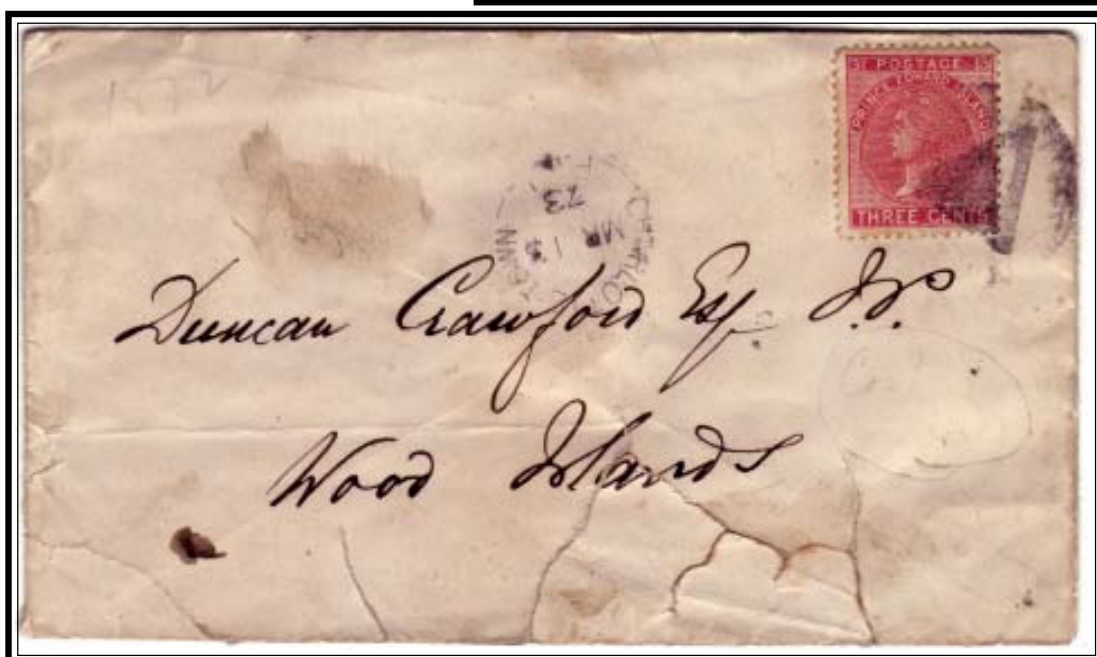 1872
3¢ POSTAGE 3¢
PRINCE EDWARD ISLAND
THREE CENTS
MR 13
73
Duncan Crawford Esq. J.P.
Wood Islands